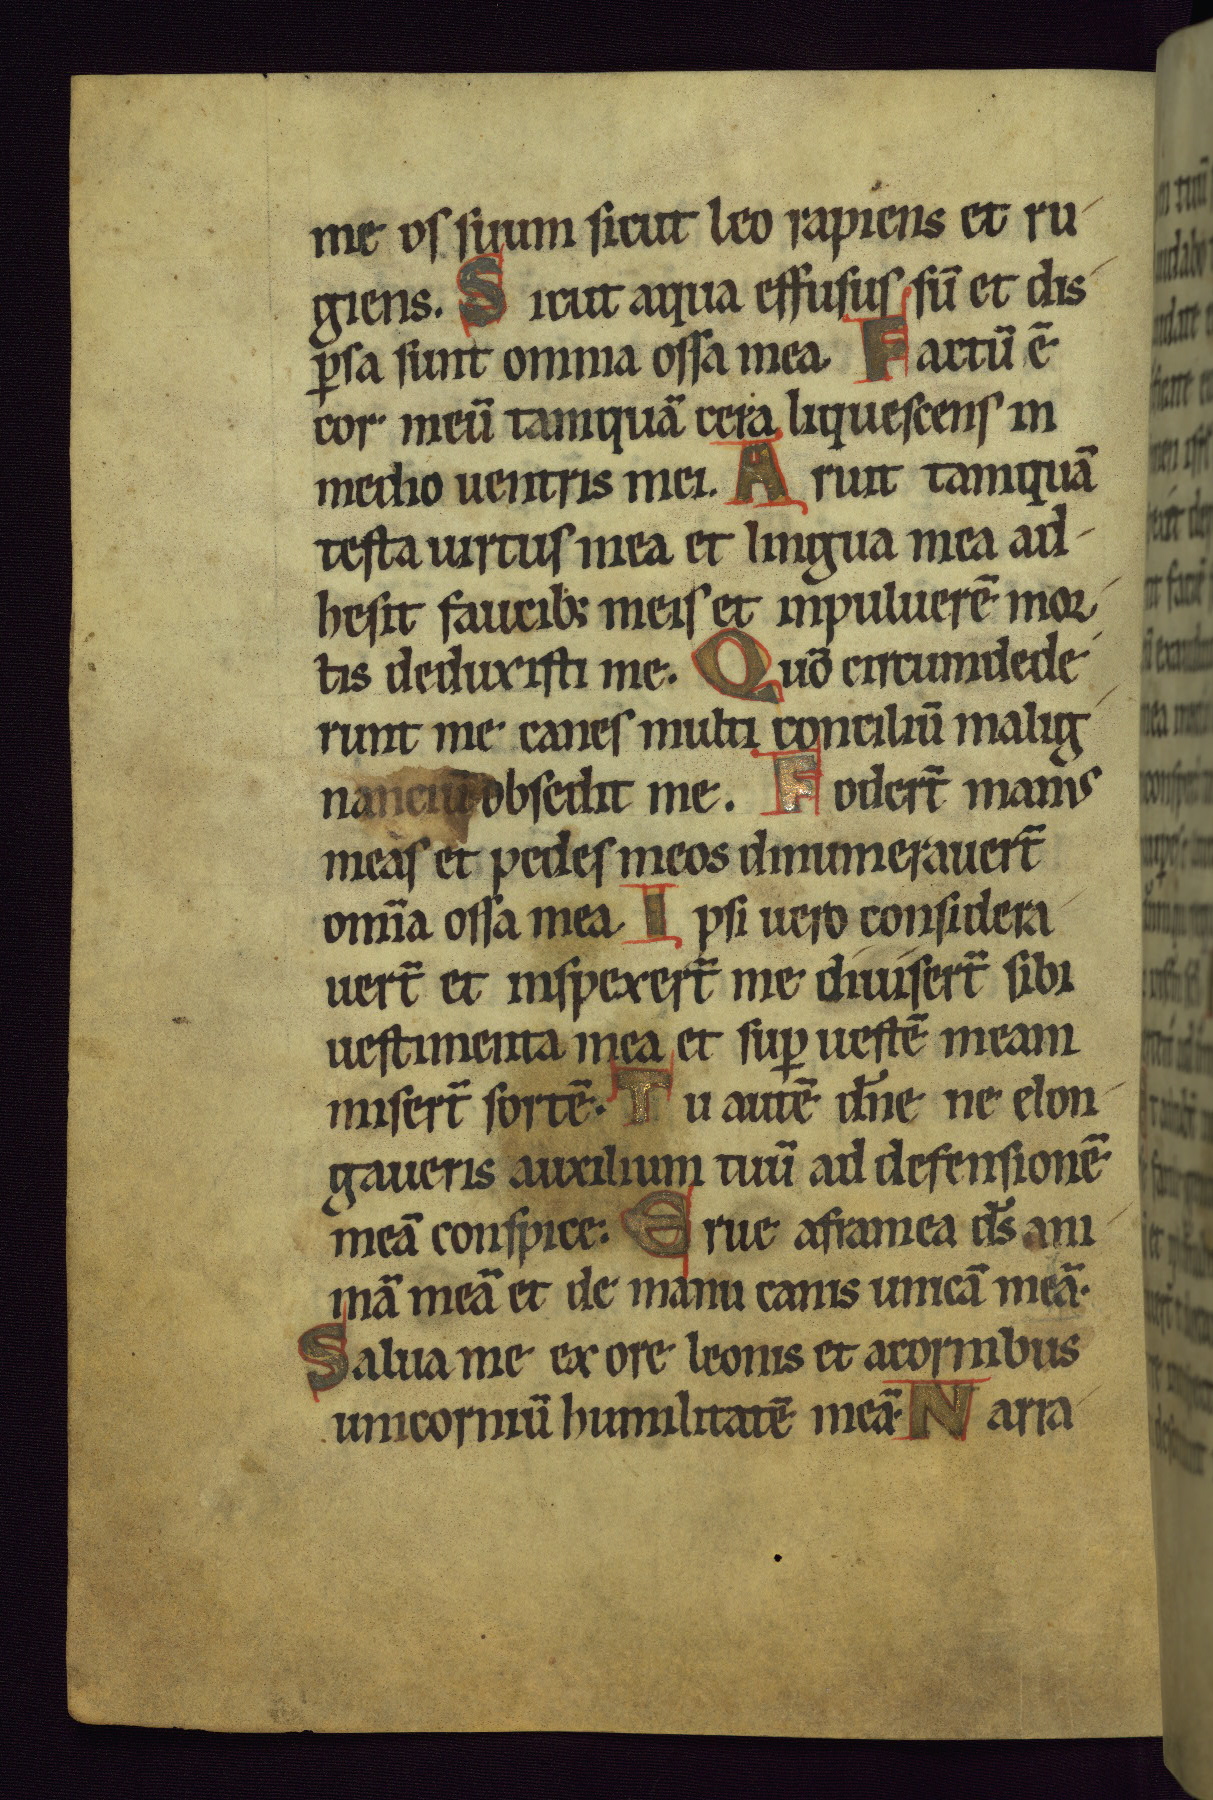 me os suum sicut leo rapiens et ru
giens. Sicut aqua effusus sū et dis
ꝑsa sunt omnia ossa mea. Factū ē
cor meū tamquā cera liquescens in
medio uentris mei. Aruit tamquā
testa uirtus mea et lingua mea ad-
hesit faucib; meis et inpuluerē mor
tis deduxisti me. Quō circumdede
runt me canes multi conciliū malig
nanciū obsedit me. Foder̄t manus
meas et pedes meos dinumerauer̄t
om̄ia ossa mea. Ipsi uero considera
uer̄t et inspexer̄t me diuiser̄t sibi
uestimenta mea et suꝑ uestē meam
miser̄t sortē. Tu autē dn̄e ne elon
gaueris auxilium tuū ad defensionē
meā conspice. Erue aframea ds̄ ani
mā meā et de manu canis unicā meā.
Salua me ex ore leonis et acornibus
unicorniū humilitatē meā. Narra